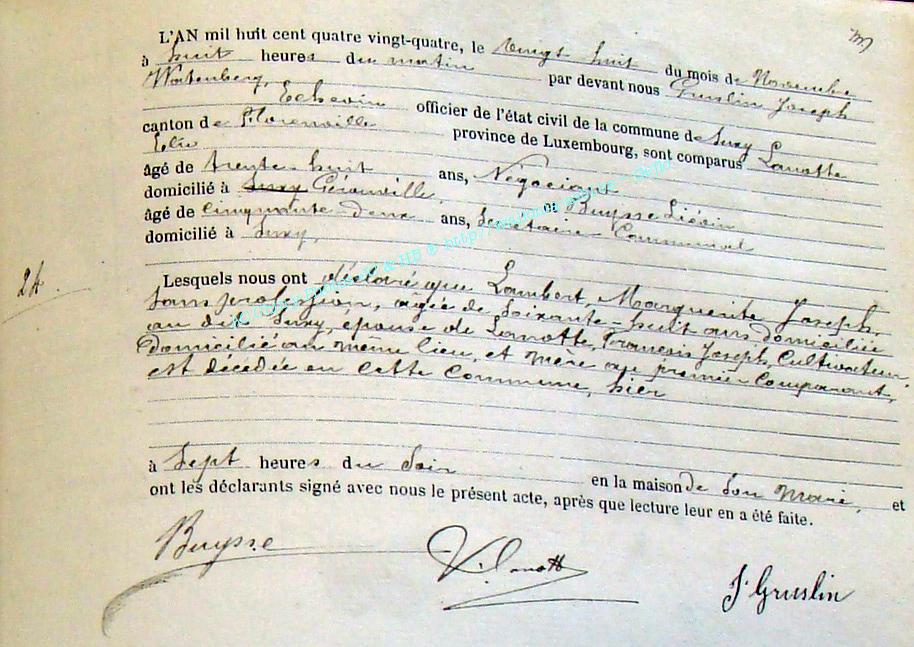 L'AN mil huit cent quatre vingt-quatre, le vingt huit du mois de Novembre
à huit heures du matin par devant nous Gruslin Joseph
Echevin officier de l'état civil de la commune de Suxy
canton de Florenville province de Luxembourg, sont comparus Lamotte
Elie
âgé de trente-huit ans, Négociant
domicilié à Suxy Gérouville, et Buysse Liévin
âgé de cinquante deux ans, Secrétaire Communal
domicilié à Suxy,
24
Lesquels nous ont déclaré que Lambert, Marguerite Joseph,
sans profession, agée de soixante-huit ans domiciliée
au dit Suxy, épouse de Lamotte, François Joseph, Cultivateur,
domicilié au même lieu, et mère au premier Comparant,
est décédée en cette Commune, hier
à Sept heures du Soir en la maison de Son Mari, et
ont les déclarants signé avec nous le présent acte, après que lecture leur en a été faite.
Buysse
J. Gruslin